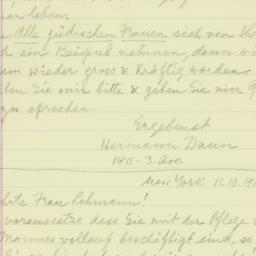 erleben.
Alle jüdischen Frauen sich von Ih
ein Beispiel nehmen, dann wi
wieder gross & Kräftig werden.
ten Sie mir bitte & geben Sie mir G
zu sprechen
Ergebenst
Hermann Daum
140-3. Ave.
New York 11.10.19
hrte Frau Lehmann!
voraussetze dass Sie mit der Pflege
Mannes vollauf beschäftigt sind, so